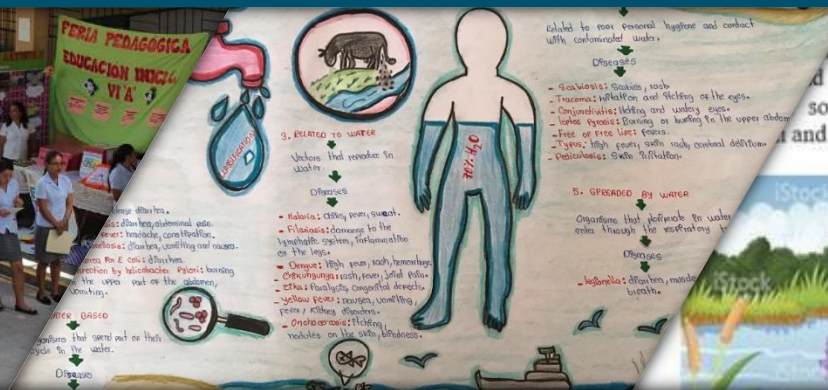 FERIA PEDAGOGICA
EDUCACIÓN INICIAL
VI 'A'
CLASIFICATION
diarrhea.
diarrhea, abdominal pain.
fever: headache, constipation.
diarrhea, vomiting and nausea.
E coli: diarrhea.
by helicobacter Pylori: burning
in the upper part of the abdomen,
vomiting.
BASED
that spend part of their
cycle in the water.
Diseases
3. RELATED TO WATER
Vectors that reproduce in
water.
Diseases
- Malaria: chills, fever, sweat.
- Filariasis: damage to the
lymphatic system, inflammation
of the legs.
- Dengue: High fever, rash, hemorrhage.
Chikungunya: rash, fever, joint pain.
- Zika: Paralysis, congenital defects.
- Yellow Fever: nausea, vomiting,
fever, kidney disorders.
- Onchocerciasis: Itching,
nodules on the skin, blindness.
70% H2O
Related to poor personal hygiene and contact
with contaminated water.
Diseases
- Scabiosis: Scabies, rash
- Tracoma: irritation and itching of the eyes.
- Conjunctivitis: Itching and watery eyes.
Burning or burning in the upper abdom
- Free of Free lice: fevers.
- Typus: high fever, skin rash, cerebral delirium.
- Pediculosis: Skin irritation.
5. SPREADED BY WATER
Organisms that proliferate in water
enter through the respiratory
Diseases
- legionella: diarrhea, muscle
breath.
so
and
iStock
iStock